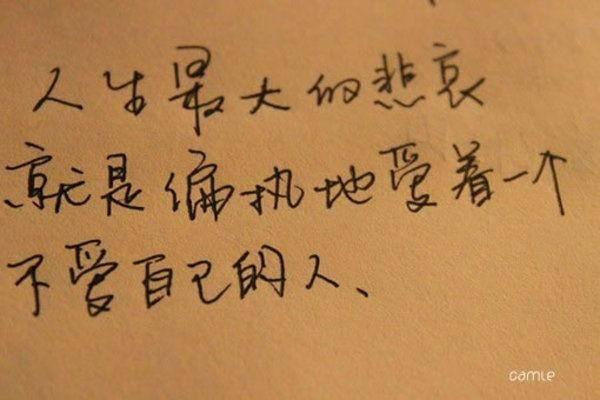 人生最大的悲哀
就是偏执地爱着一个
不爱自己的人、
Camle